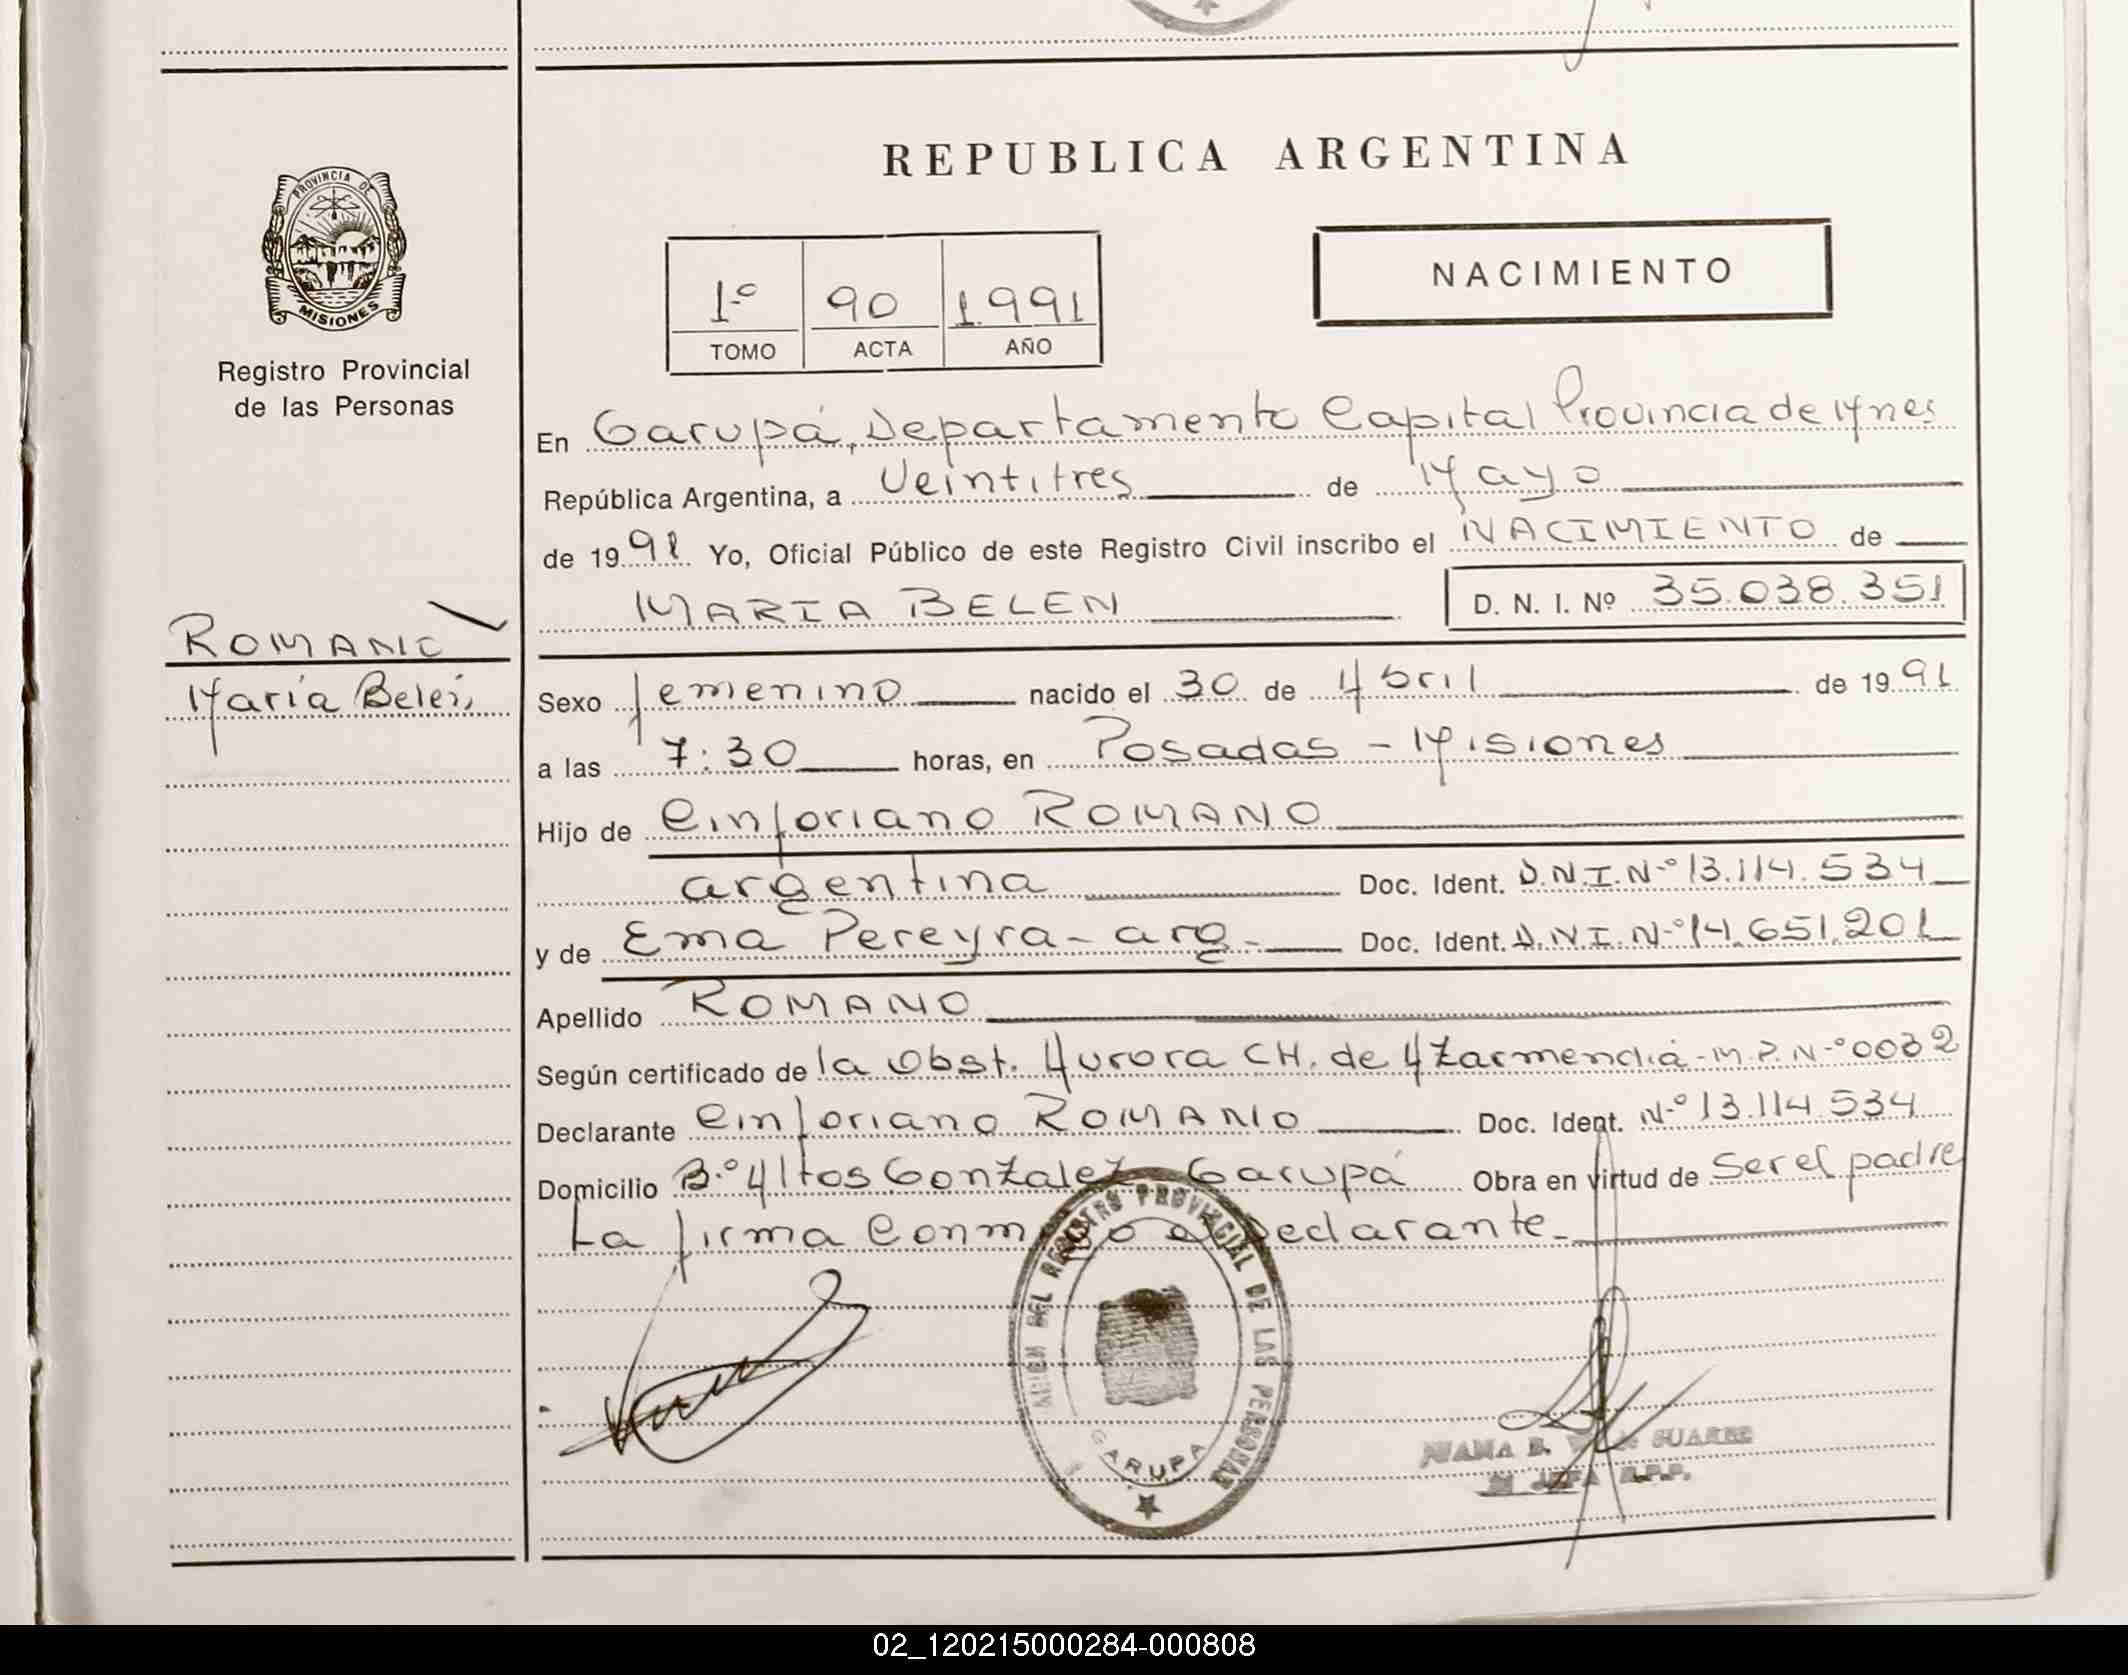 REPUBLICA ARGENTINA
PROVINCIA DE
MISIONES
Registro Provincial
de las Personas
1º 90 1.991
TOMO ACTA AÑO
NACIMIENTO
En Garupá, Departamento Capital Provincia de Mnes
República Argentina, a Veintitres de Mayo
de 1991 Yo, Oficial Público de este Registro Civil inscribo el NACIMIENTO de
MARIA BELEN D. N. I. Nº 35.038.351
ROMANO
María Belen
Sexo femenino nacido el 30 de Abril de 1991
a las 7:30 horas, en Posadas - Misiones
Hijo de Cinforiano ROMANO
argentina Doc. Ident. D.N.I.Nº 13.114.534
y de Ema Pereyra - arg - Doc. Ident. D.N.I.Nº 14.651.201
Apellido ROMANO
Según certificado de la Obst. Aurora CH. de Azarmendia - M.P.Nº 0032
Declarante Cinforiano ROMANO Doc. Ident. Nº 13.114.534
Domicilio Bº Altos Gonzalez - Garupá Obra en virtud de Ser el padre
La firma Conmigo el Declarante -
DEL REGISTRO PROVINCIAL DE LAS PERSONAS
GARUPA
JUANA B. SUAREZ
JEFA R.P.P.
02_120215000284-000808